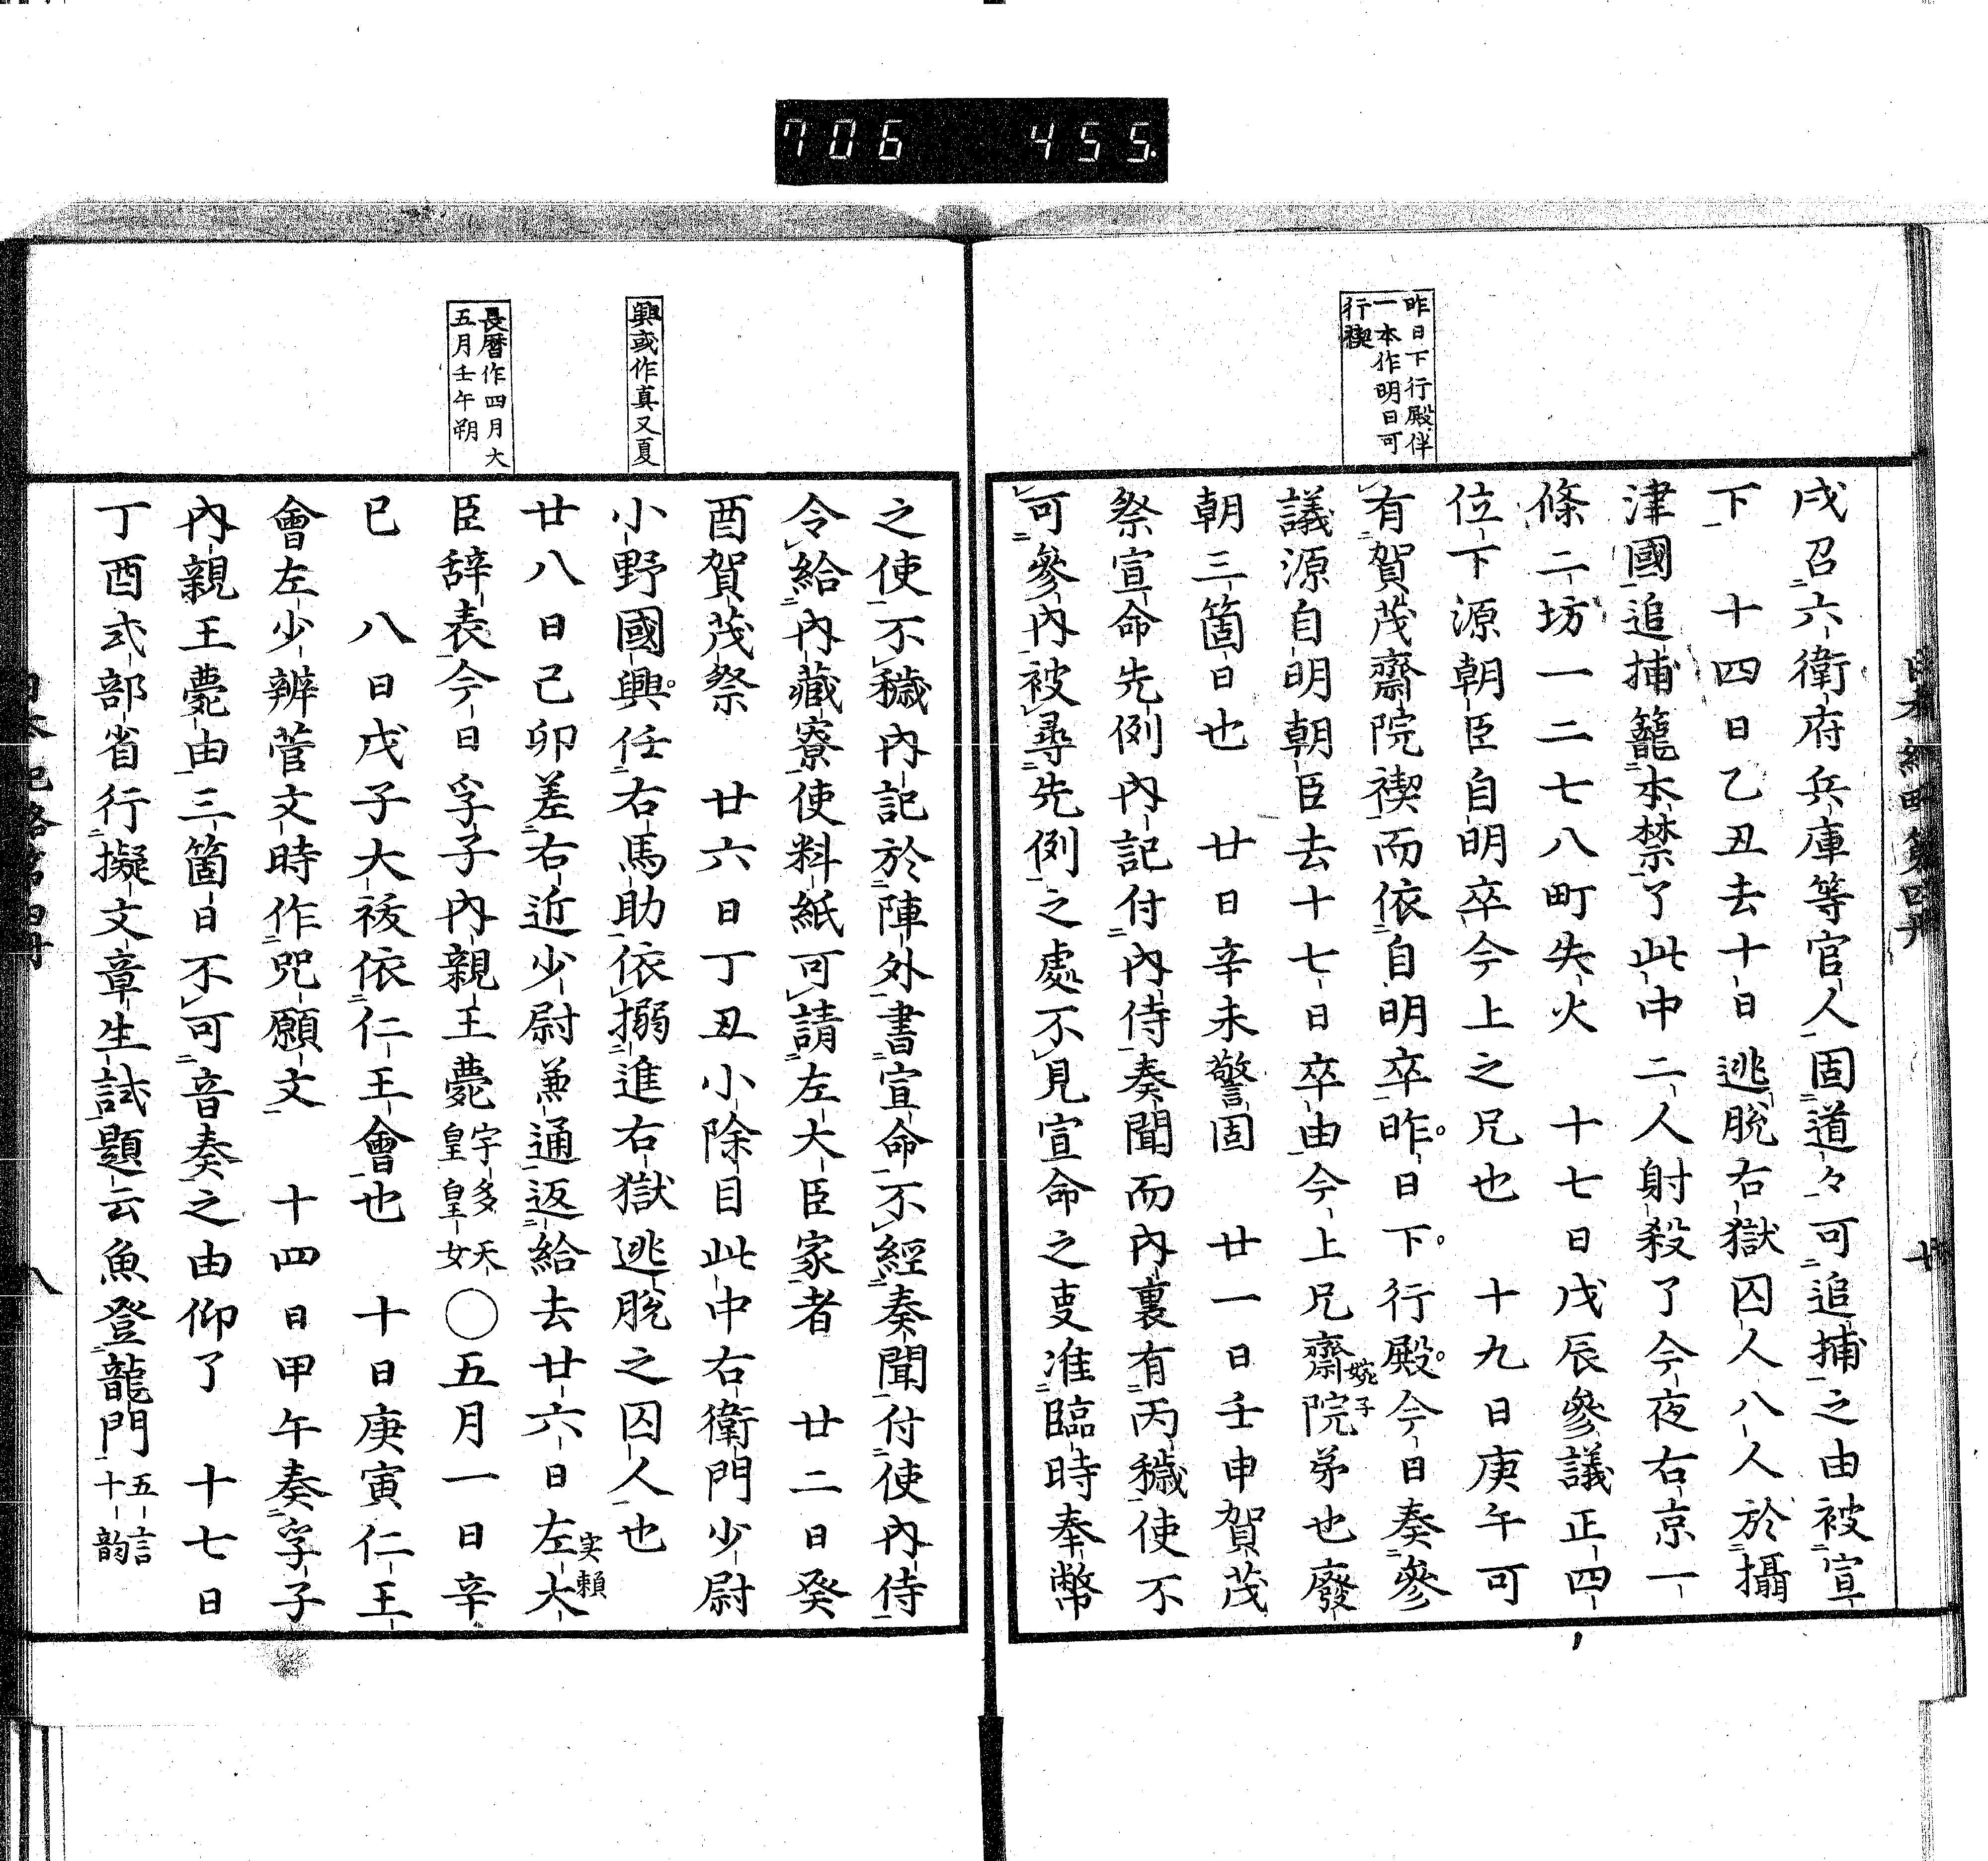 706 455
昨日下行殿伴
一本作明日可
行禊
戌召六衛府兵庫等官人固道々可追捕之由被宣
下　十四日乙丑去十日逃脫右獄囚人八人於攝
津國追捕籠本禁了此中二人射殺了今夜右京一
條二坊一二七八町失火　十七日戊辰參議正四
位下源朝臣自明卒今上之兄也　十九日庚午可
有賀茂齋院禊而依自明卒昨日下行殿今日奏參
議源自明朝臣去十七日卒由今上兄齋院婉子弟也廢
朝三箇日也　廿日辛未警固　廿一日壬申賀茂
祭宣命先例內記付內侍奏聞而內裏有丙穢使不
可參內被尋先例之處不見宣命之叓准臨時奉幣
興或作真又夏
長曆作四月大
五月壬午朔
之使不穢內記於陣外書宣命不經奏聞付使內侍
令給內藏寮使料紙可請左大臣家者　廿二日癸
酉賀茂祭　廿六日丁丑小除目此中右衛門少尉
小野國興任右馬助依搦進右獄逃脫之囚人也
廿八日己卯差右近少尉兼通返給去廿六日左大実頼
臣辞表今日孚子內親王薨宇多天皇皇女○五月一日辛
巳　八日戊子大祓依仁王會也　十日庚寅仁王
會左少辨菅文時作咒願文　十四日甲午奏孚子
內親王薨由三箇日不可音奏之由仰了　十七日
丁酉式部省行擬文章生試題云魚登龍門五言十韵
八